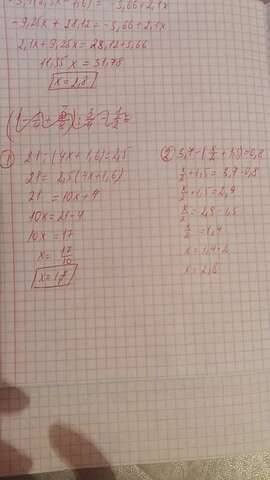 -9,25x + 28,12 = -3,66 + 2,1x
2,1x + 9,25x = 28,12 + 3,66
11,35x = 31,78
x = 2,8
① 21 : (4x + 1,6) = 2,5
21 = 2,5(4x + 1,6)
21 = 10x + 4
10x = 21 - 4
10x = 17
x = 17/10
x = 1,7
② 3,7 - (x/2 + 1,5) = 0,8
x/2 + 1,5 = 3,7 - 0,8
x/2 + 1,5 = 2,9
x/2 = 2,9 - 1,5
x/2 = 1,4
x = 1,4 · 2
x = 2,8